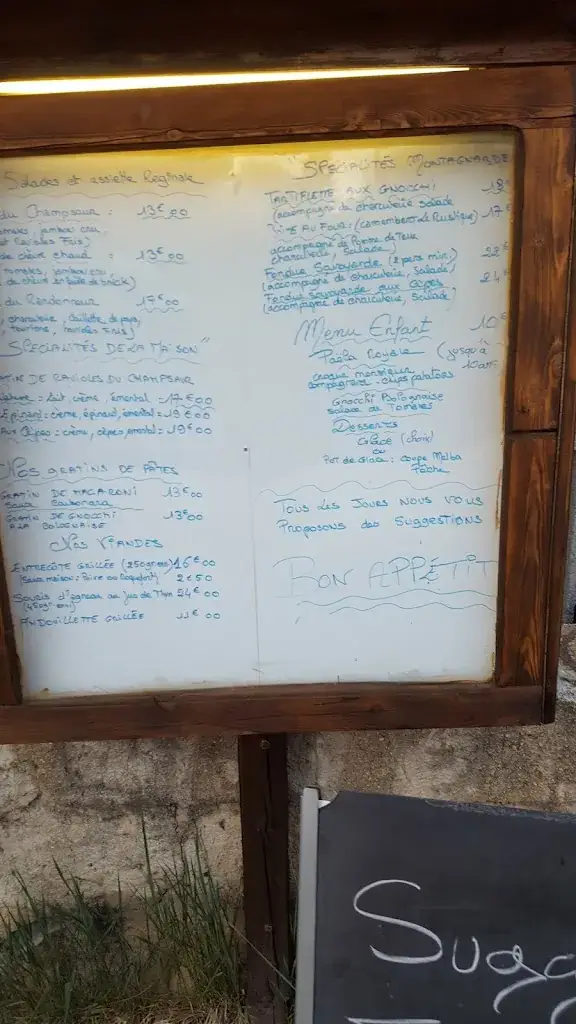 Salades et assiette Regionale
du Champsaur : 13€00
tomates, jambon cru,
et Ravioles Frits)
de chèvre chaud : 13€00
tomates, jambon cru,
du Randonneur 17€00
charcuterie, caillette de pays,
tourtons, ravioles Frits)
SPECIALITÉS DE LA MAISON"
RAVIOLES DU CHAMPSAUR
Nature : lait, crème, émental = 17€00
Epinard : crème, épinard, émental = 19€00
Aux Cèpes : crème, cèpes, émental = 19€00
NOS GRATINS DE PÂTES
GRATIN DE MACARONI 13€00
Sauce Carbonara
GRATIN DE GNOCCHI 13€00
A LA BOLOGNAISE
NOS VIANDES
ENTRECÔTE GRILLÉE (250grms) 16€00
(Sauce maison : Poivre ou Roquefort) 2€50
Souris d'agneau au jus de Thym 24€00
(450grms)
ANDOUILLETTE GRILLÉE 11€00
"SPÉCIALITÉS MONTAGNARDE
TARTIFLETTE AUX GNOCCHI 18€
(accompagné de charcuterie salade
AU FOUR : (camembert Le Rustique) 17€
accompagné de Pomme de Terre
charcuterie, salade)
Fondue Savoyarde (2 pers min) 22€
(accompagné de charcuterie, Salade)
Fondue savoyarde aux cèpes 24€
(accompagné de charcuterie, Salade)
Menu Enfant 10€
(jusqu'à
croque monsieur
compagnard - chips patatoes
GNOCCHI Bolognaise
salade de Tomates
Desserts
Glace (choix)
ou
POT de Glace : Coupe Melba
Pêche
TOUS LES JOURS NOUS VOUS
Proposons des Suggestions
BON APPÉTIT
Sugg